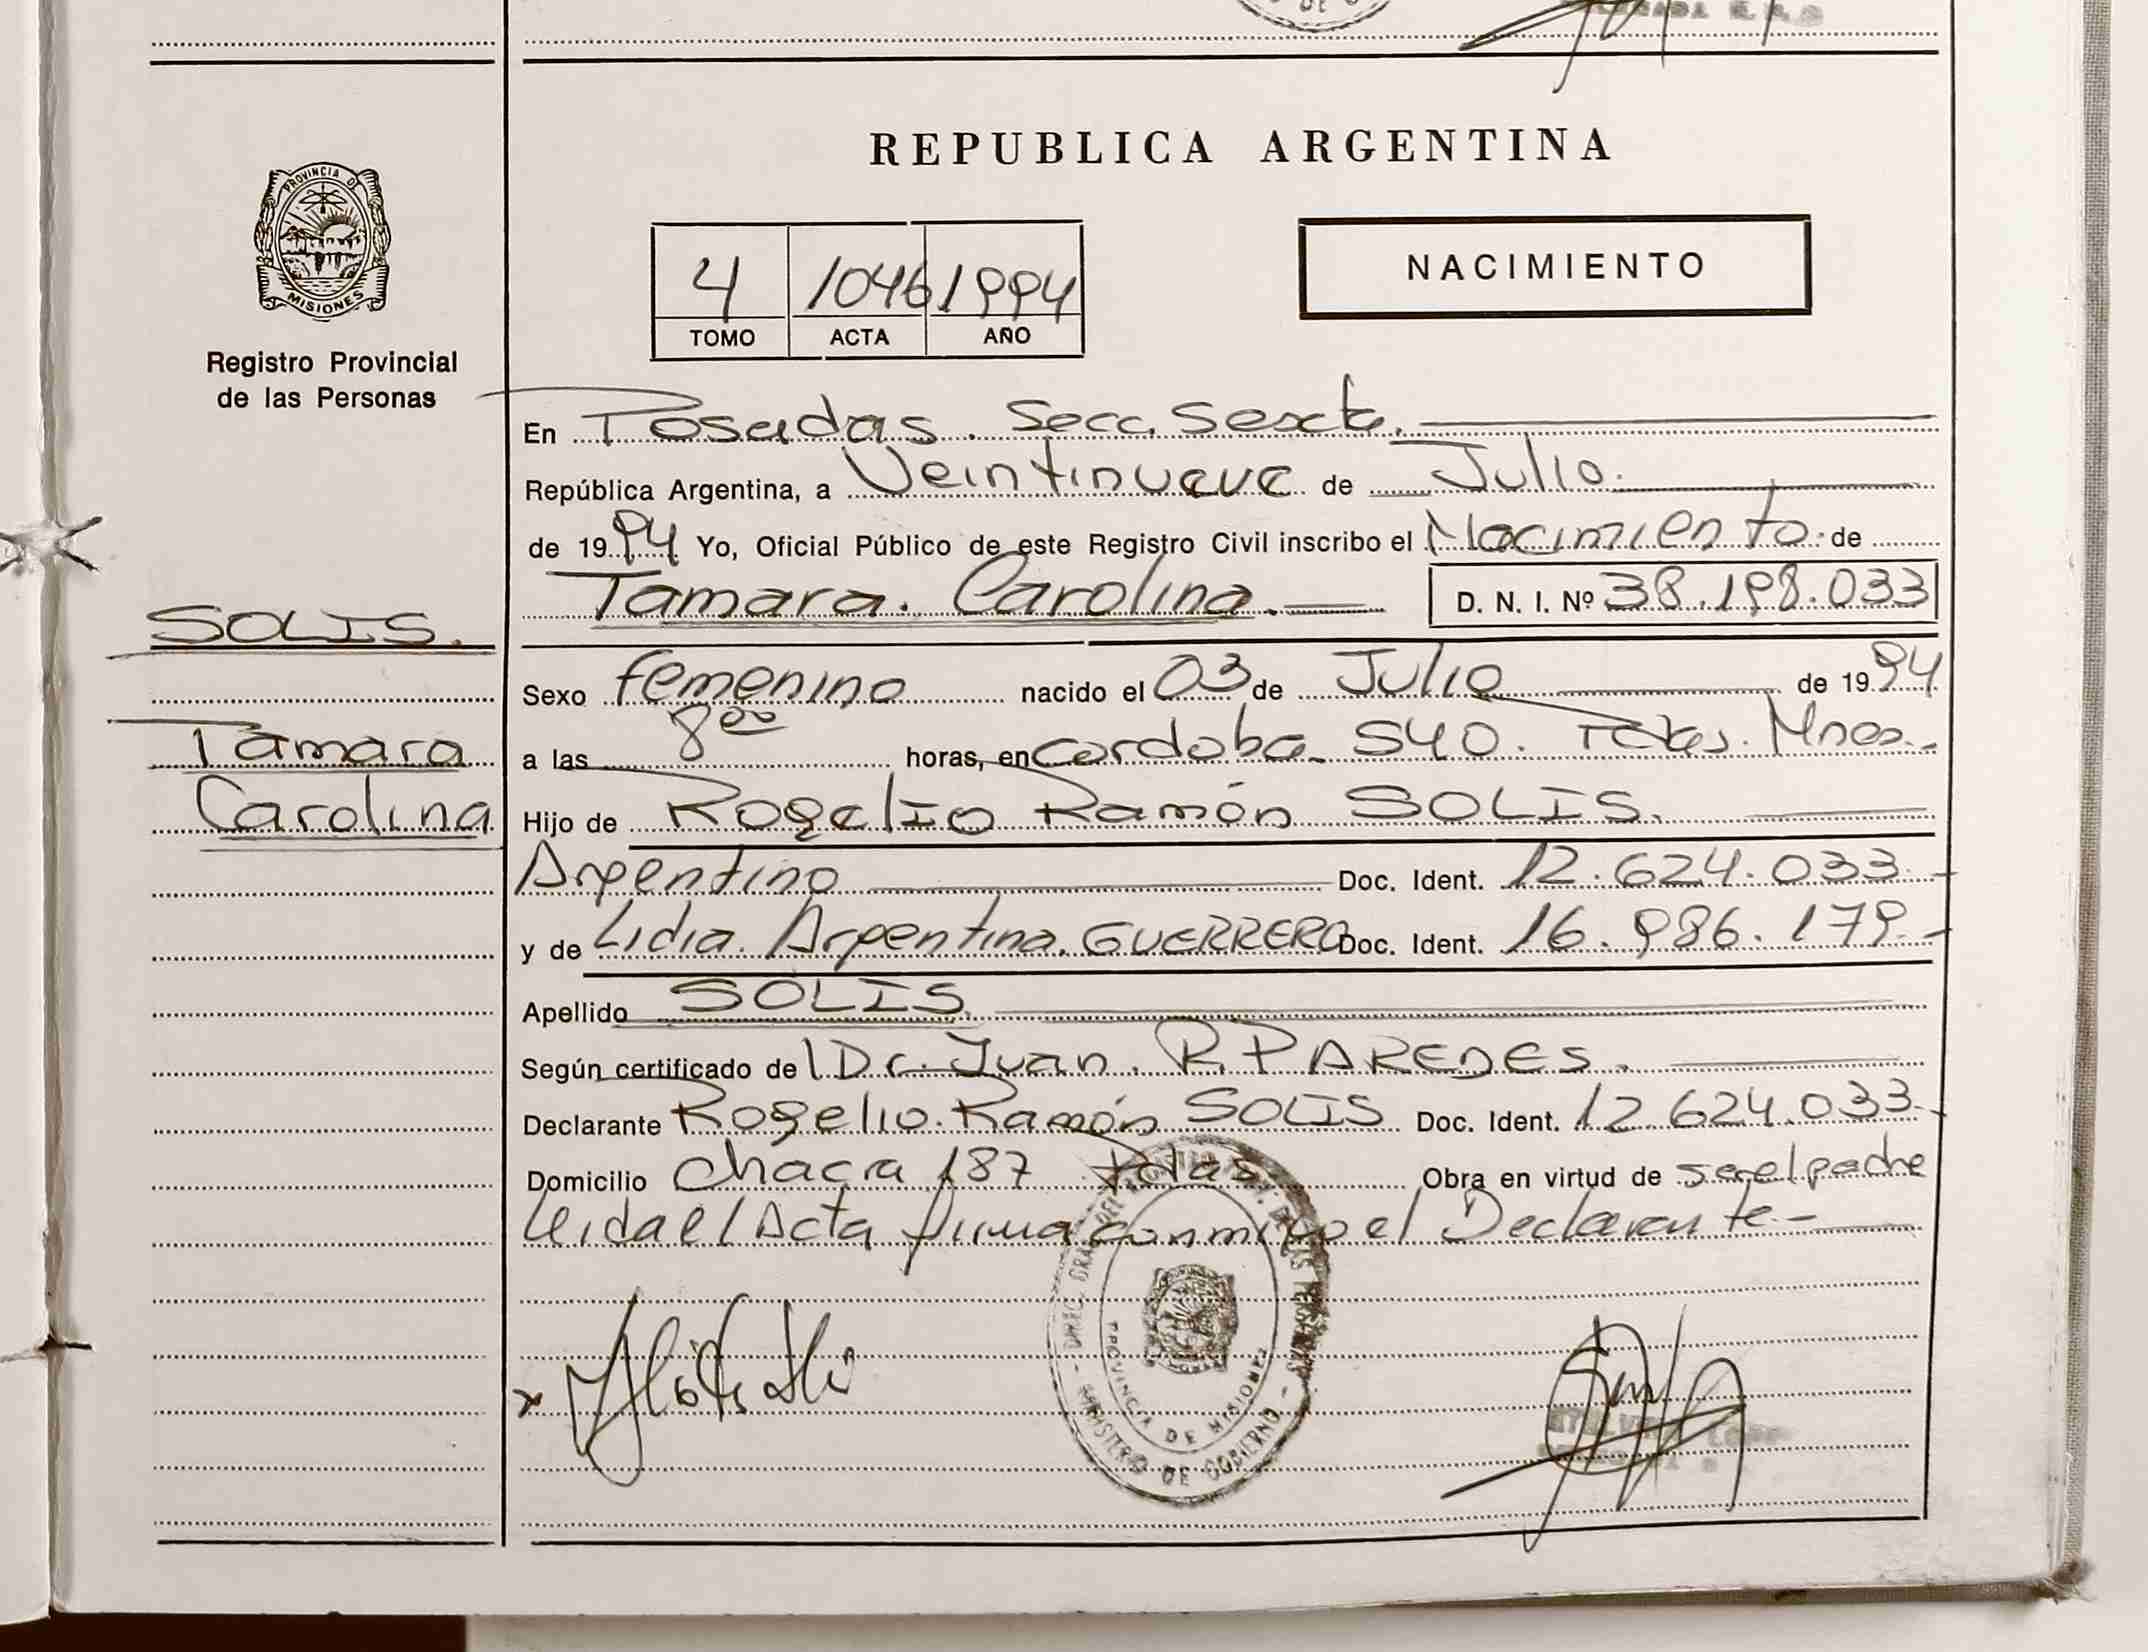 PROVINCIA DE
MISIONES
Registro Provincial
de las Personas
SOLIS.
Tamara
Carolina
REPUBLICA ARGENTINA
4 1046 1994
TOMO ACTA AÑO
NACIMIENTO
En Posadas. Secc. Sexta.
República Argentina, a Veintinueve de Julio.
de 1994 Yo, Oficial Público de este Registro Civil inscribo el Nacimiento de
Tamara. Carolina. D. N. I. Nº 38.198.033
Sexo femenino nacido el 03 de Julio de 1994
a las 8⁰⁰ horas, en Cordoba 540. Pdas. Mnes.
Hijo de Rogelio Ramón SOLIS.
Argentino Doc. Ident. 12.624.033
y de Lidia. Argentina. GUERRERO Doc. Ident. 16.986.179
Apellido SOLIS.
Según certificado de Dr. Juan. R. PAREDES.
Declarante Rogelio. Ramón SOLIS Doc. Ident. 12.624.033
Domicilio Chacra 187 Pdas Obra en virtud de ser el padre
Leida el Acta firma conmigo el Declarante.-
PROVINCIA DE MISIONES
MINISTERIO DE GOBIERNO